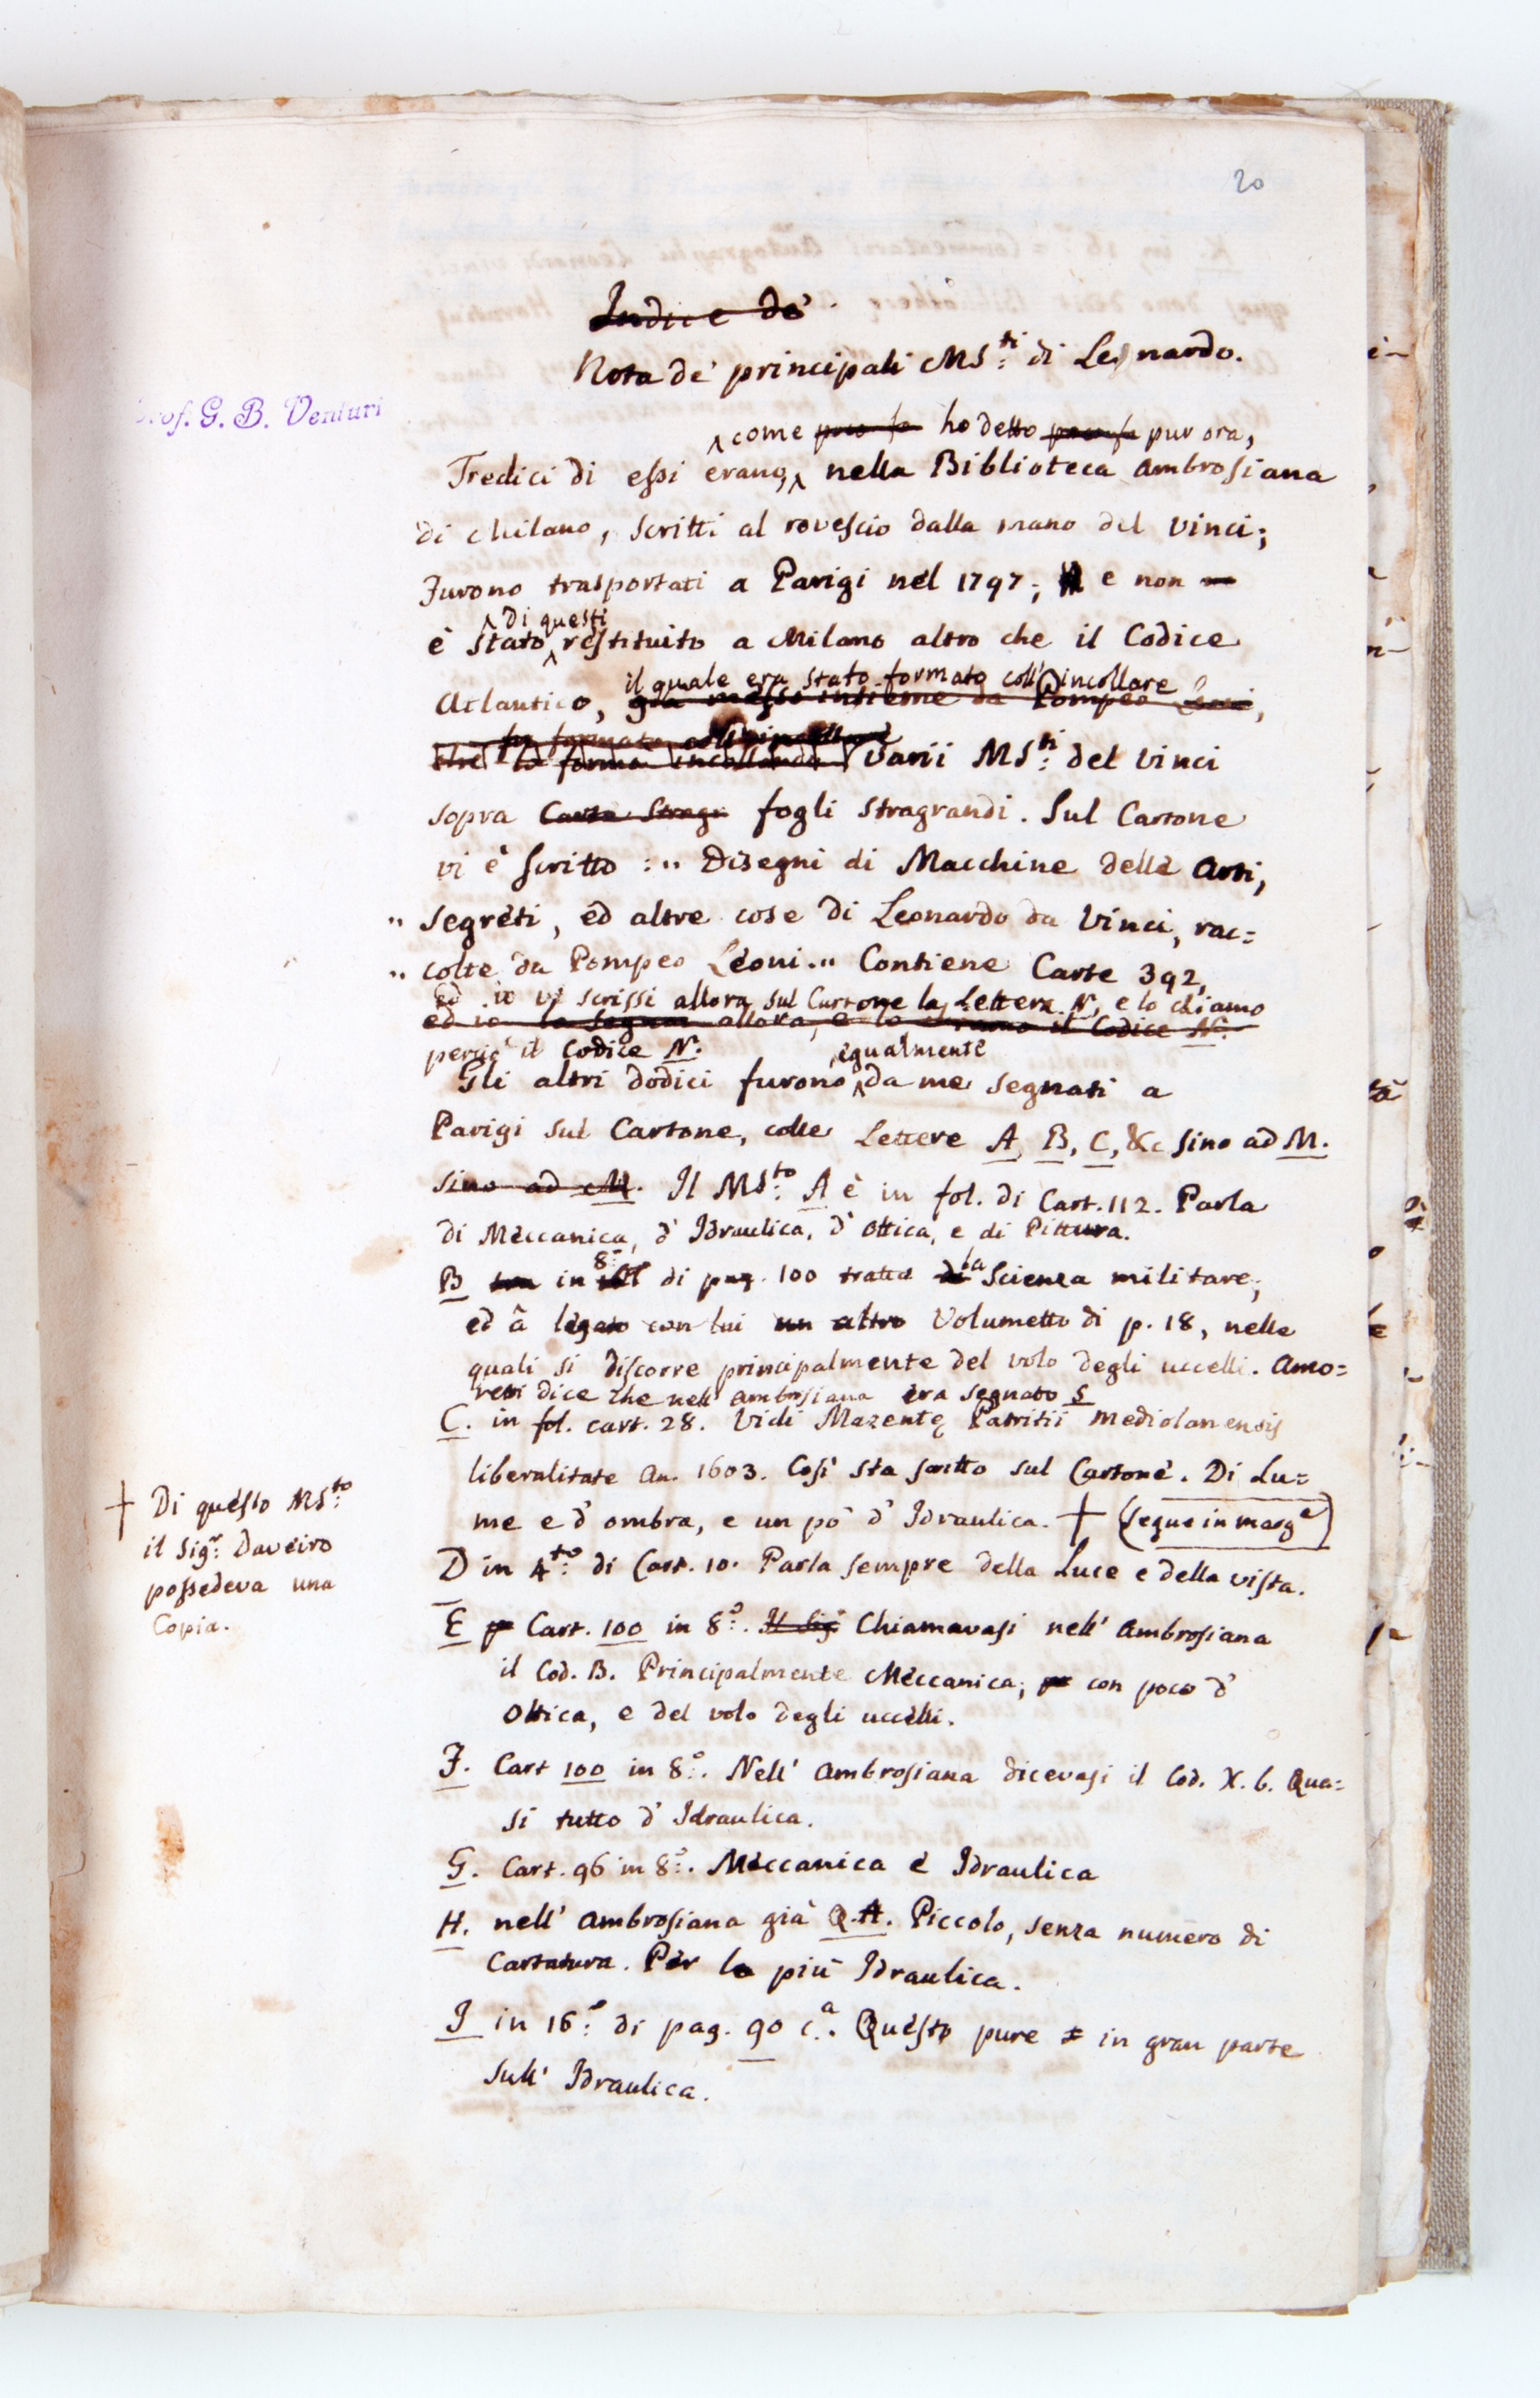 20
Indice de'
Nota de' principali MS.ti di Leonardo.
Prof. G. B. Venturi
come poco fa ho detto poco fa pur ora,
Tredici di essi erano, nella Biblioteca Ambrosiana
di Milano, scritti al rovescio dalla mano del Vinci;
furono trasportati a Parigi nel 1797; e non
di questi
è stato restituito a Milano altro che il Codice
il quale era stato formato coll' incollare
Atlantico, già messo insieme da Pompeo Leoni,
fu formato coll' incollare
che lo formò incollando varii MS.ti del Vinci
sopra Carta Stragr fogli stragrandi. Sul Cartone
vi è scritto: „ Disegni di Macchine delle Arti,
„ segreti, ed altre cose di Leonardo da Vinci, rac=
„ colte da Pompeo Leoni. „ Contiene Carte 392,
ed io vi scrissi allora sul Cartone la Lettera N, e lo chiamo
ed io lo segnai allora, e lo chiamo il Codice N.
perciò il Codice N.
egualmente
Gli altri dodici furono da me segnati a
Parigi sul Cartone, colle Lettere A, B, C, &c sino ad M.
sino ad M. Il MS.to A è in fol. di Cart. 112. Parla
di Meccanica, d' Idraulica, d' Ottica, e di Pittura.
8.o la
B in fol di pag. 100 tratta di Scienza militare;
ed à legato con lui un altro Volumetto di p. 18, nelle
quali si discorre principalmente del volo degli uccelli. Amo=
retti dice che nell' Ambrosiana era segnato S
C. in fol. cart. 28. Vidi Mazentę Patritii Mediolanensis
liberalitate An. 1603. Così sta scritto sul Cartone. Di Lu=
me e d' ombra, e un po' d' Idraulica. † (segue in marg.e)
† Di questo MS.to
il Sig.r Daveiro
possedeva una
Copia.
D in 4.to di Cart. 10. Parla sempre della Luce e della vista.
E Cart. 100 in 8.o. Il Sig.r Chiamavasi nell' Ambrosiana
il Cod. B. Principalmente Meccanica; con poco d'
Ottica, e del volo degli uccelli.
F. Cart 100 in 8.o. Nell' Ambrosiana dicevasi il Cod. X. 6. Qua=
si tutto d' Idraulica.
G. Cart. 96 in 8.o. Meccanica e Idraulica
H. nell' Ambrosiana già Q.A. Piccolo, senza numero di
Cartatura. Per lo più Idraulica.
I in 16.o di pag. 90 c.a. Questo pure è in gran parte
sull' Idraulica.